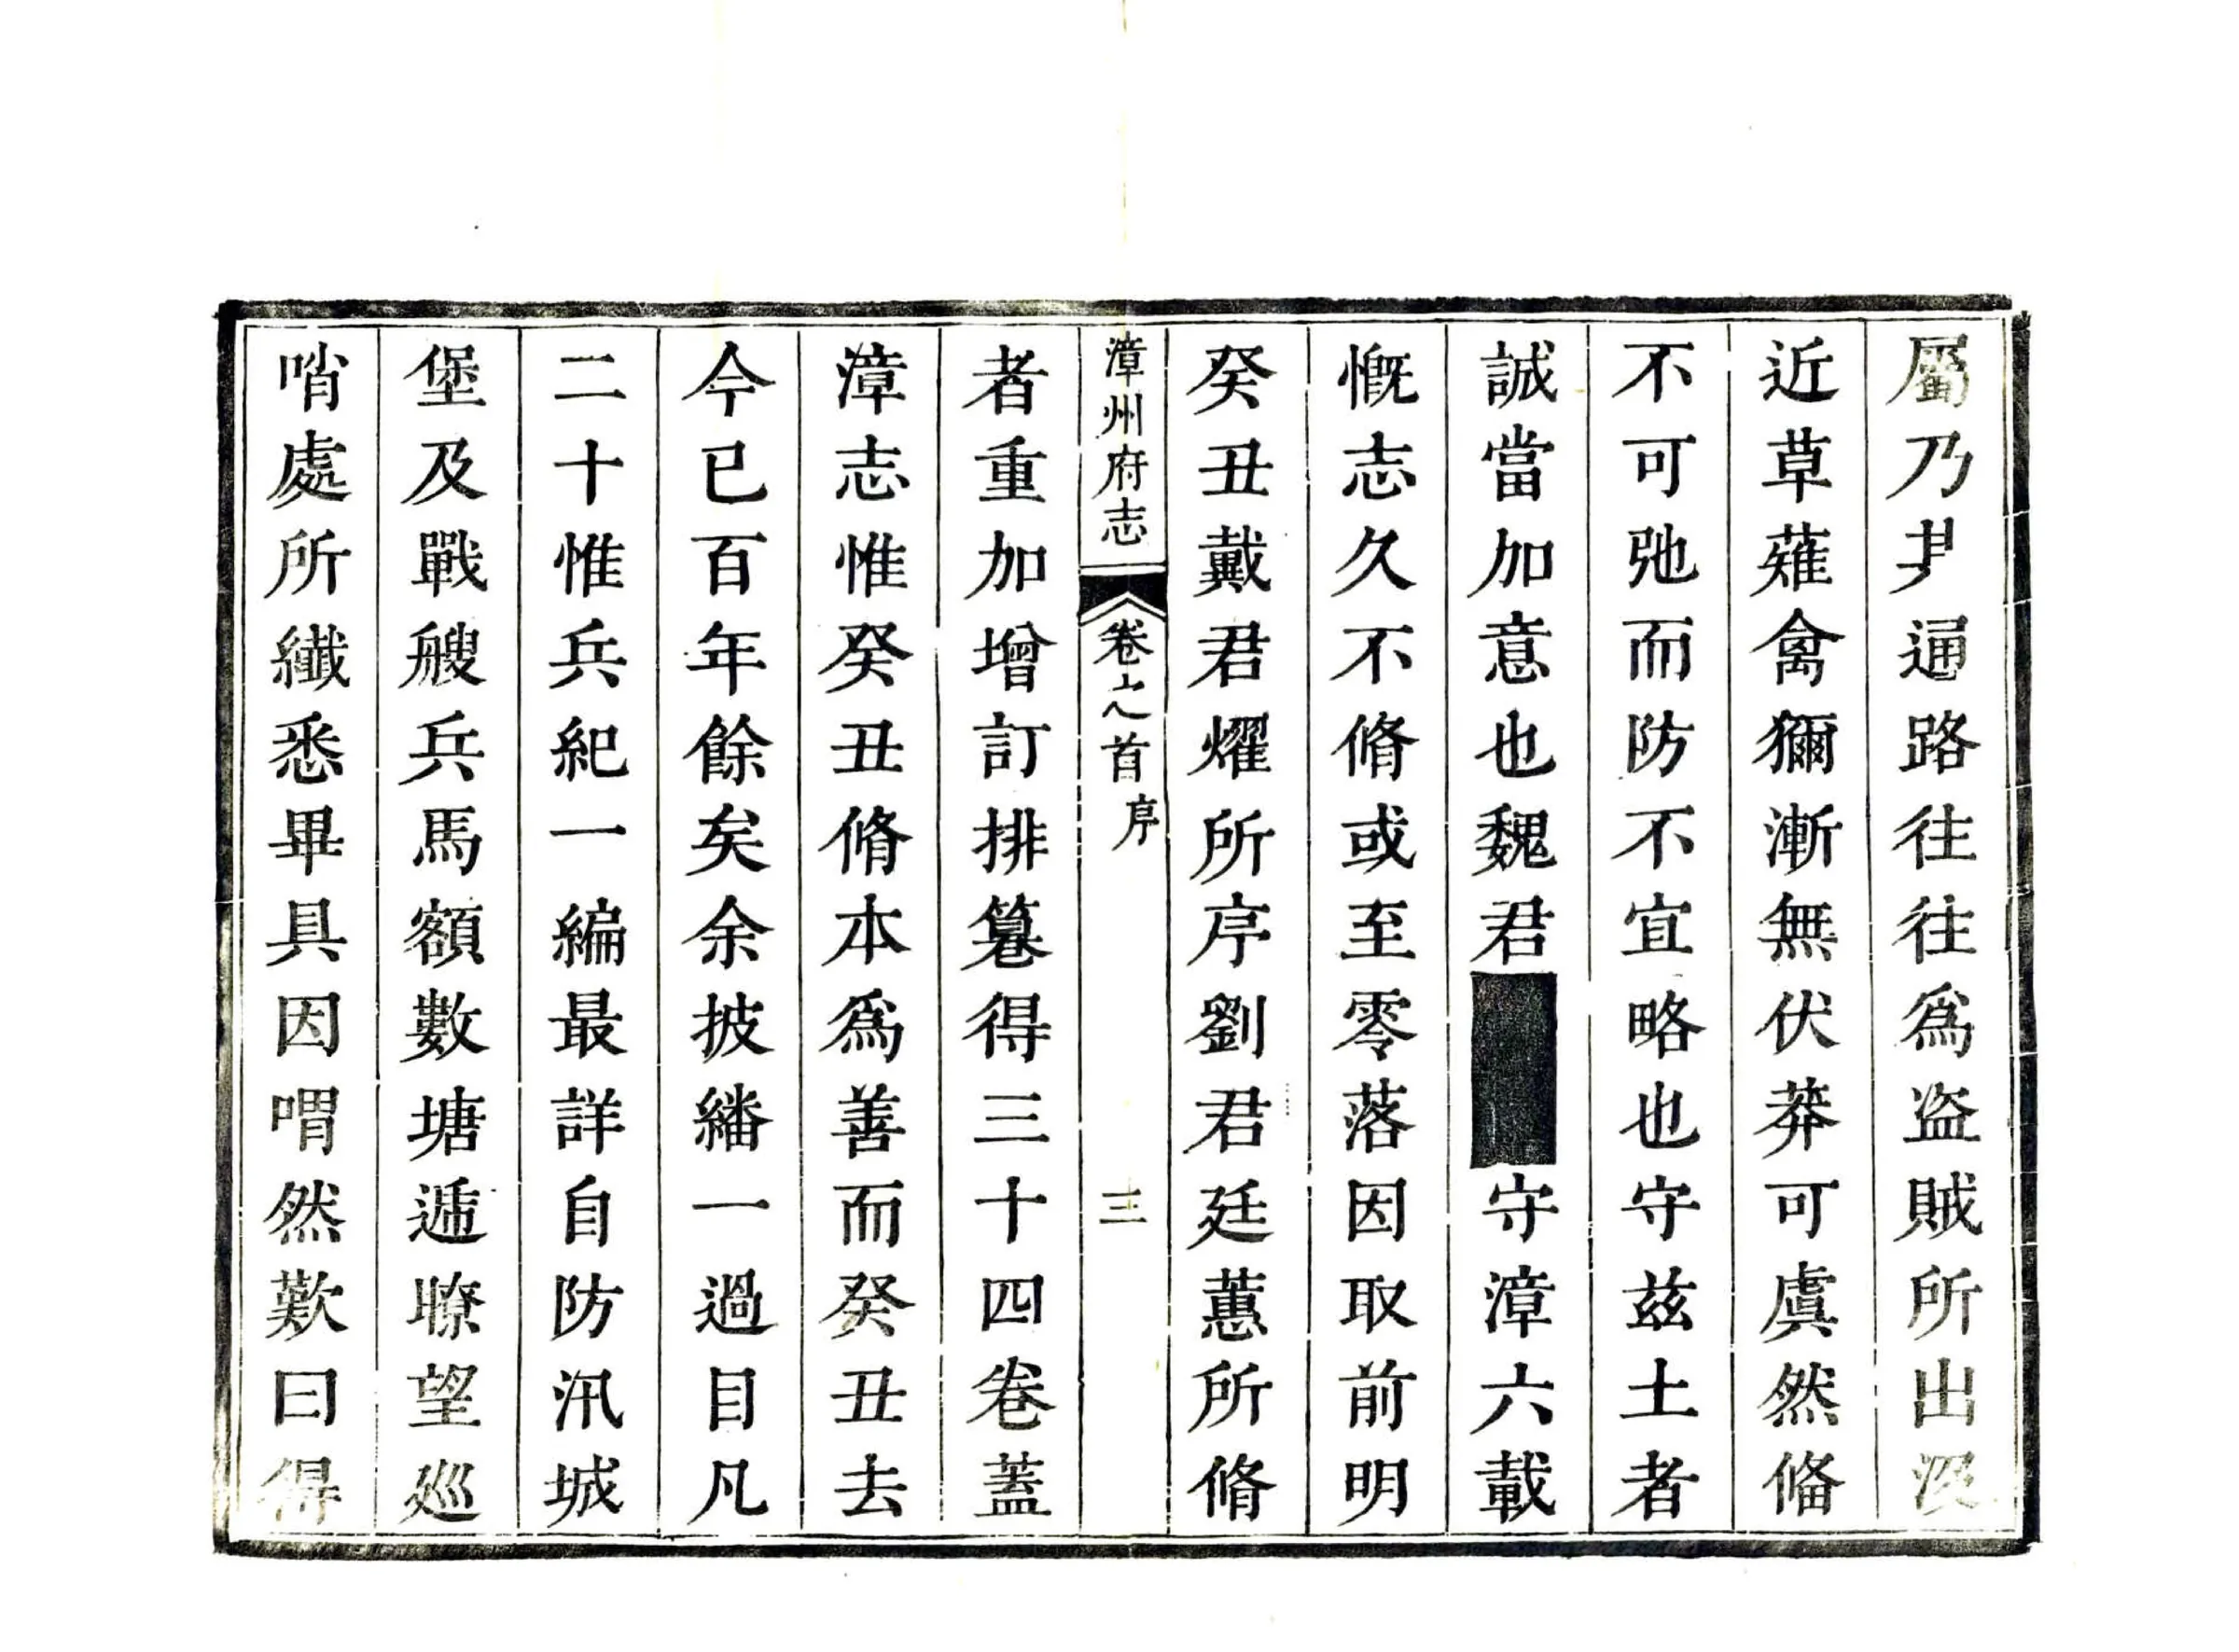 屬乃通路往往爲盗賊所出沒
近草薙禽獮漸無伏莽可虞然偹
不可弛而防不宜略也守兹土者
誠當加意也魏君守漳六載
慨志久不脩或至零落因取前明
癸丑戴君燿所序劉君廷蕙所脩
漳州府志 卷之首 序 三
者重加增訂排篹得三十四卷蓋
漳志惟癸丑脩本爲善而癸丑去
今已百年餘矣余披繙一過目凡
二十惟兵紀一編最詳自防汛城
堡及戰艘兵馬額數塘遞瞭望廵
哨處所纖悉畢具因喟然歎曰得